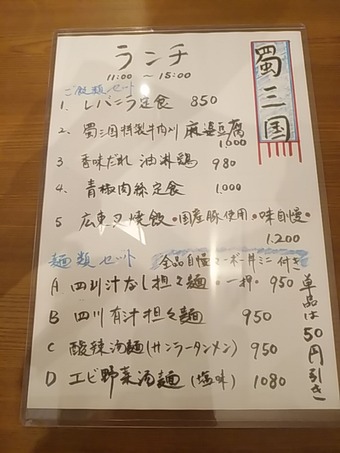 ランチ
11:00 ～ 15:00
蜀三国
ご飯類セット
1. レバニラ定食 850
2. 蜀三国特製牛肉入り 麻婆豆腐
1,000
3 香味だれ 油淋鶏 980
4. 青椒肉絲定食 1,000
5 広東叉焼飯・国産豚使用・味自慢・
1,200
麺類セット 全品自慢マーボー丼ミニ付き
A 四川汁なし担々麺・一押・950
B 四川有汁担々麺 950
C 酸辣湯麺(サンラータンメン) 950
D エビ野菜湯麺 (塩味) 1080
単品は50円引き